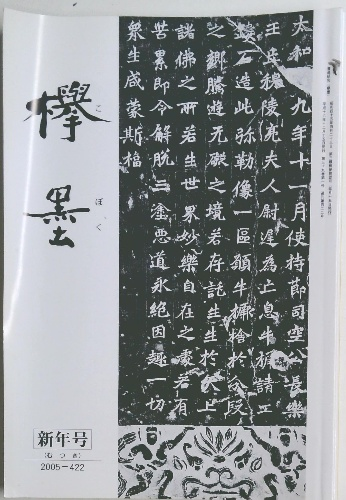 欅墨
ぼく
新年号
(むつき)
2005-422
太和十九年十一月使持節司空公長樂
王丘穆陵亮夫人尉遲為亡息牛橛請工
鏤石造此弥勒像一區願牛橛捨於分段
之鄉騰遊无礙之境若存託生生於天上
諸佛之所若生世界妙樂自在之處若有
苦累即令解脫三塗惡道永絕因趣一切
衆生咸蒙斯福